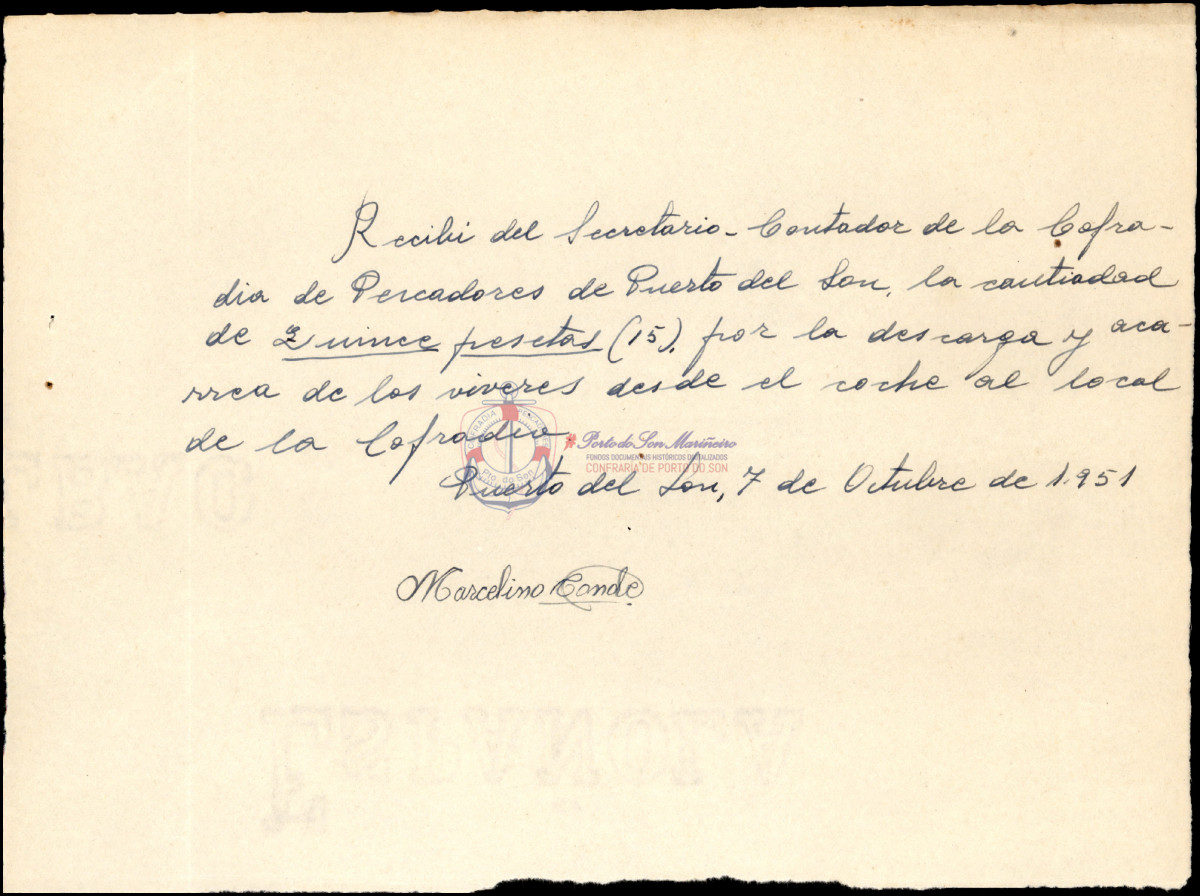 Recibi del Secretario-Contador de la Cofra-
dia de Pescadores de Puerto del Son, la cantiadad
de Quince pesetas (15), por la descarga y aca-
rrea de los viveres desde el coche al local
de la Cofradia
Puerto del Son, 7 de Octubre de 1.951
Marcelino Conde
COFRADIA PESCADORES
Pto. do Son
Porto do Son Mariñeiro
FONDOS DOCUMENTAIS HISTÓRICOS DIXITALIZADOS
CONFRARÍA DE PORTO DO SON
ESPAÑOLA